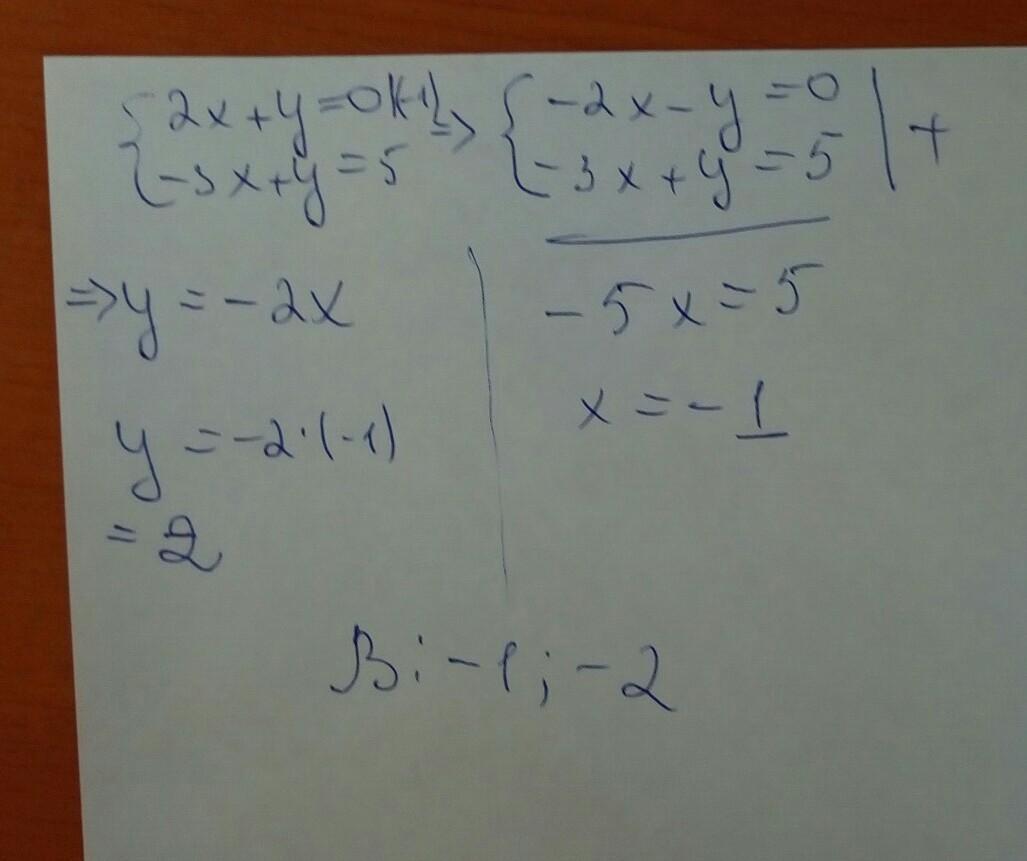 {2x+y=0|(-1) => {-2x-y=0 | +
{-3x+y=5 {-3x+y=5
=>y=-2x
-5x=5
x=-1
y=-2·(-1)
=2
В:-1;-2